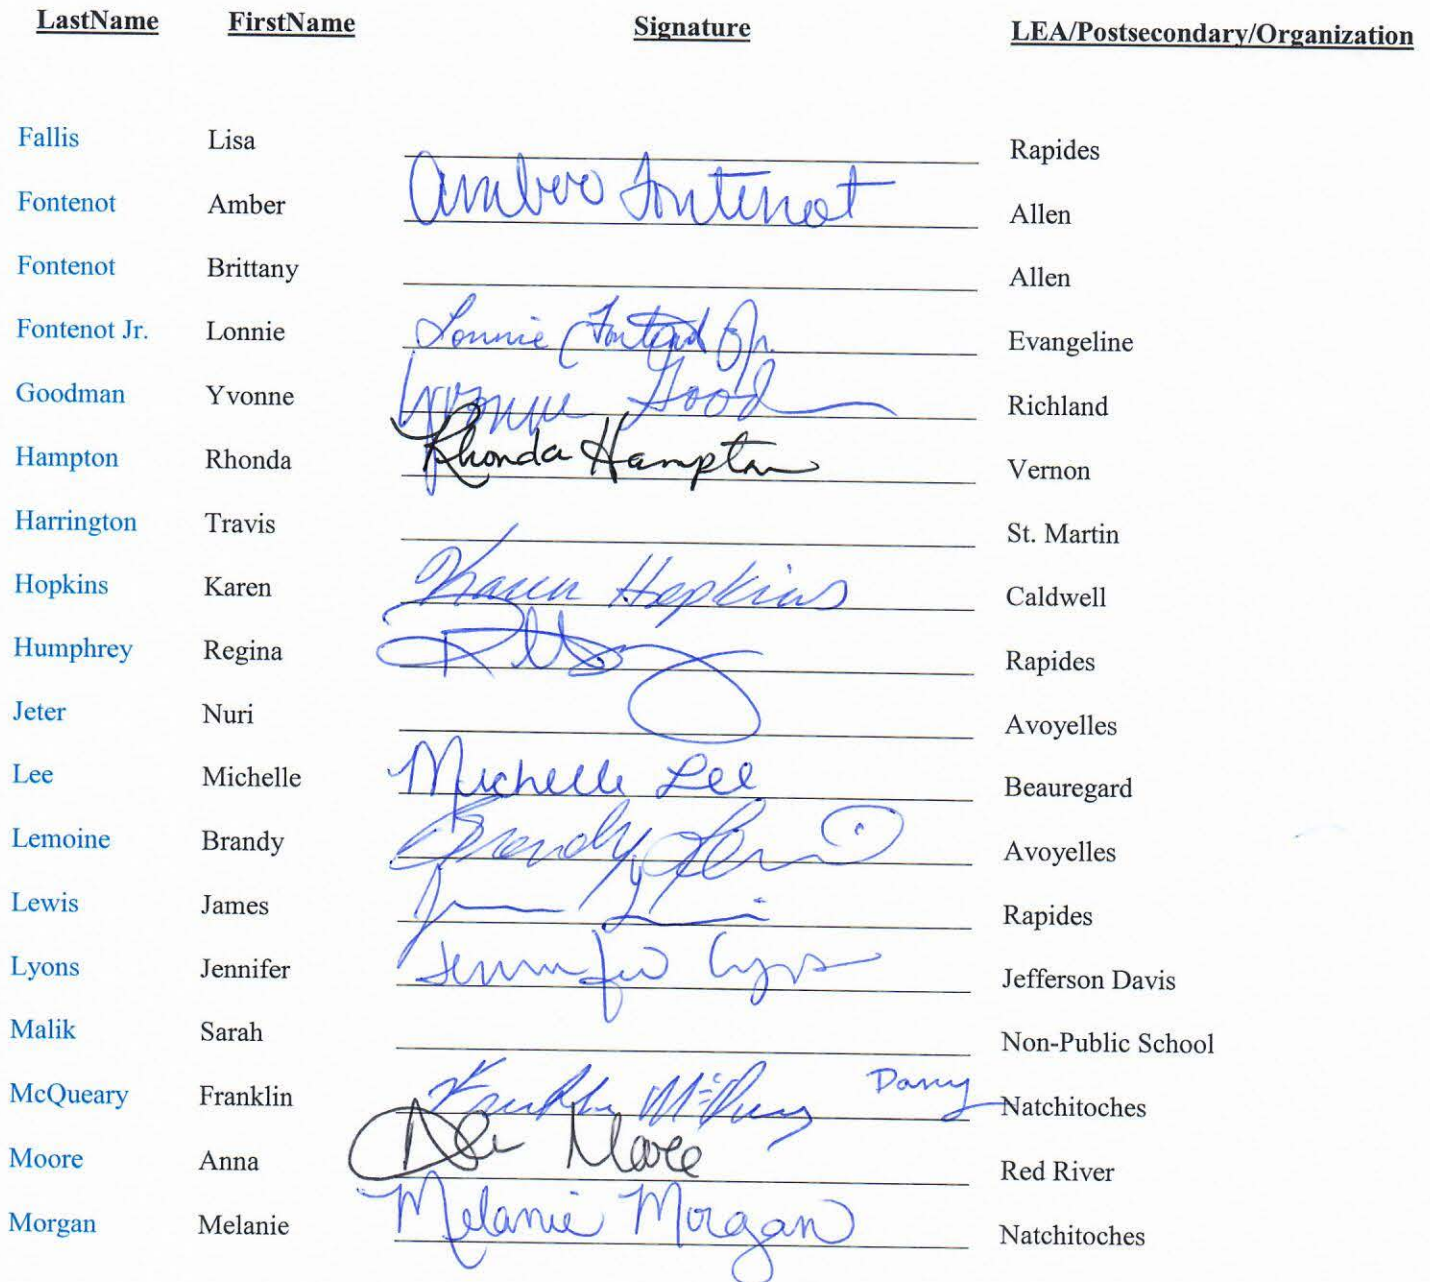 LastName FirstName Signature LEA/Postsecondary/Organization
Fallis Lisa Rapides
Fontenot Amber Amber Fontenot Allen
Fontenot Brittany Allen
Fontenot Jr. Lonnie Lonnie Fontenot Jr. Evangeline
Goodman Yvonne Yvonne Good Richland
Hampton Rhonda Rhonda Hampton Vernon
Harrington Travis St. Martin
Hopkins Karen Karen Hopkins Caldwell
Humphrey Regina Rapides
Jeter Nuri Avoyelles
Lee Michelle Michelle Lee Beauregard
Lemoine Brandy Brandy Avoyelles
Lewis James Rapides
Lyons Jennifer Jennifer Lyons Jefferson Davis
Malik Sarah Non-Public School
McQueary Franklin Natchitoches
Moore Anna Moore Red River
Morgan Melanie Melanie Morgan Natchitoches